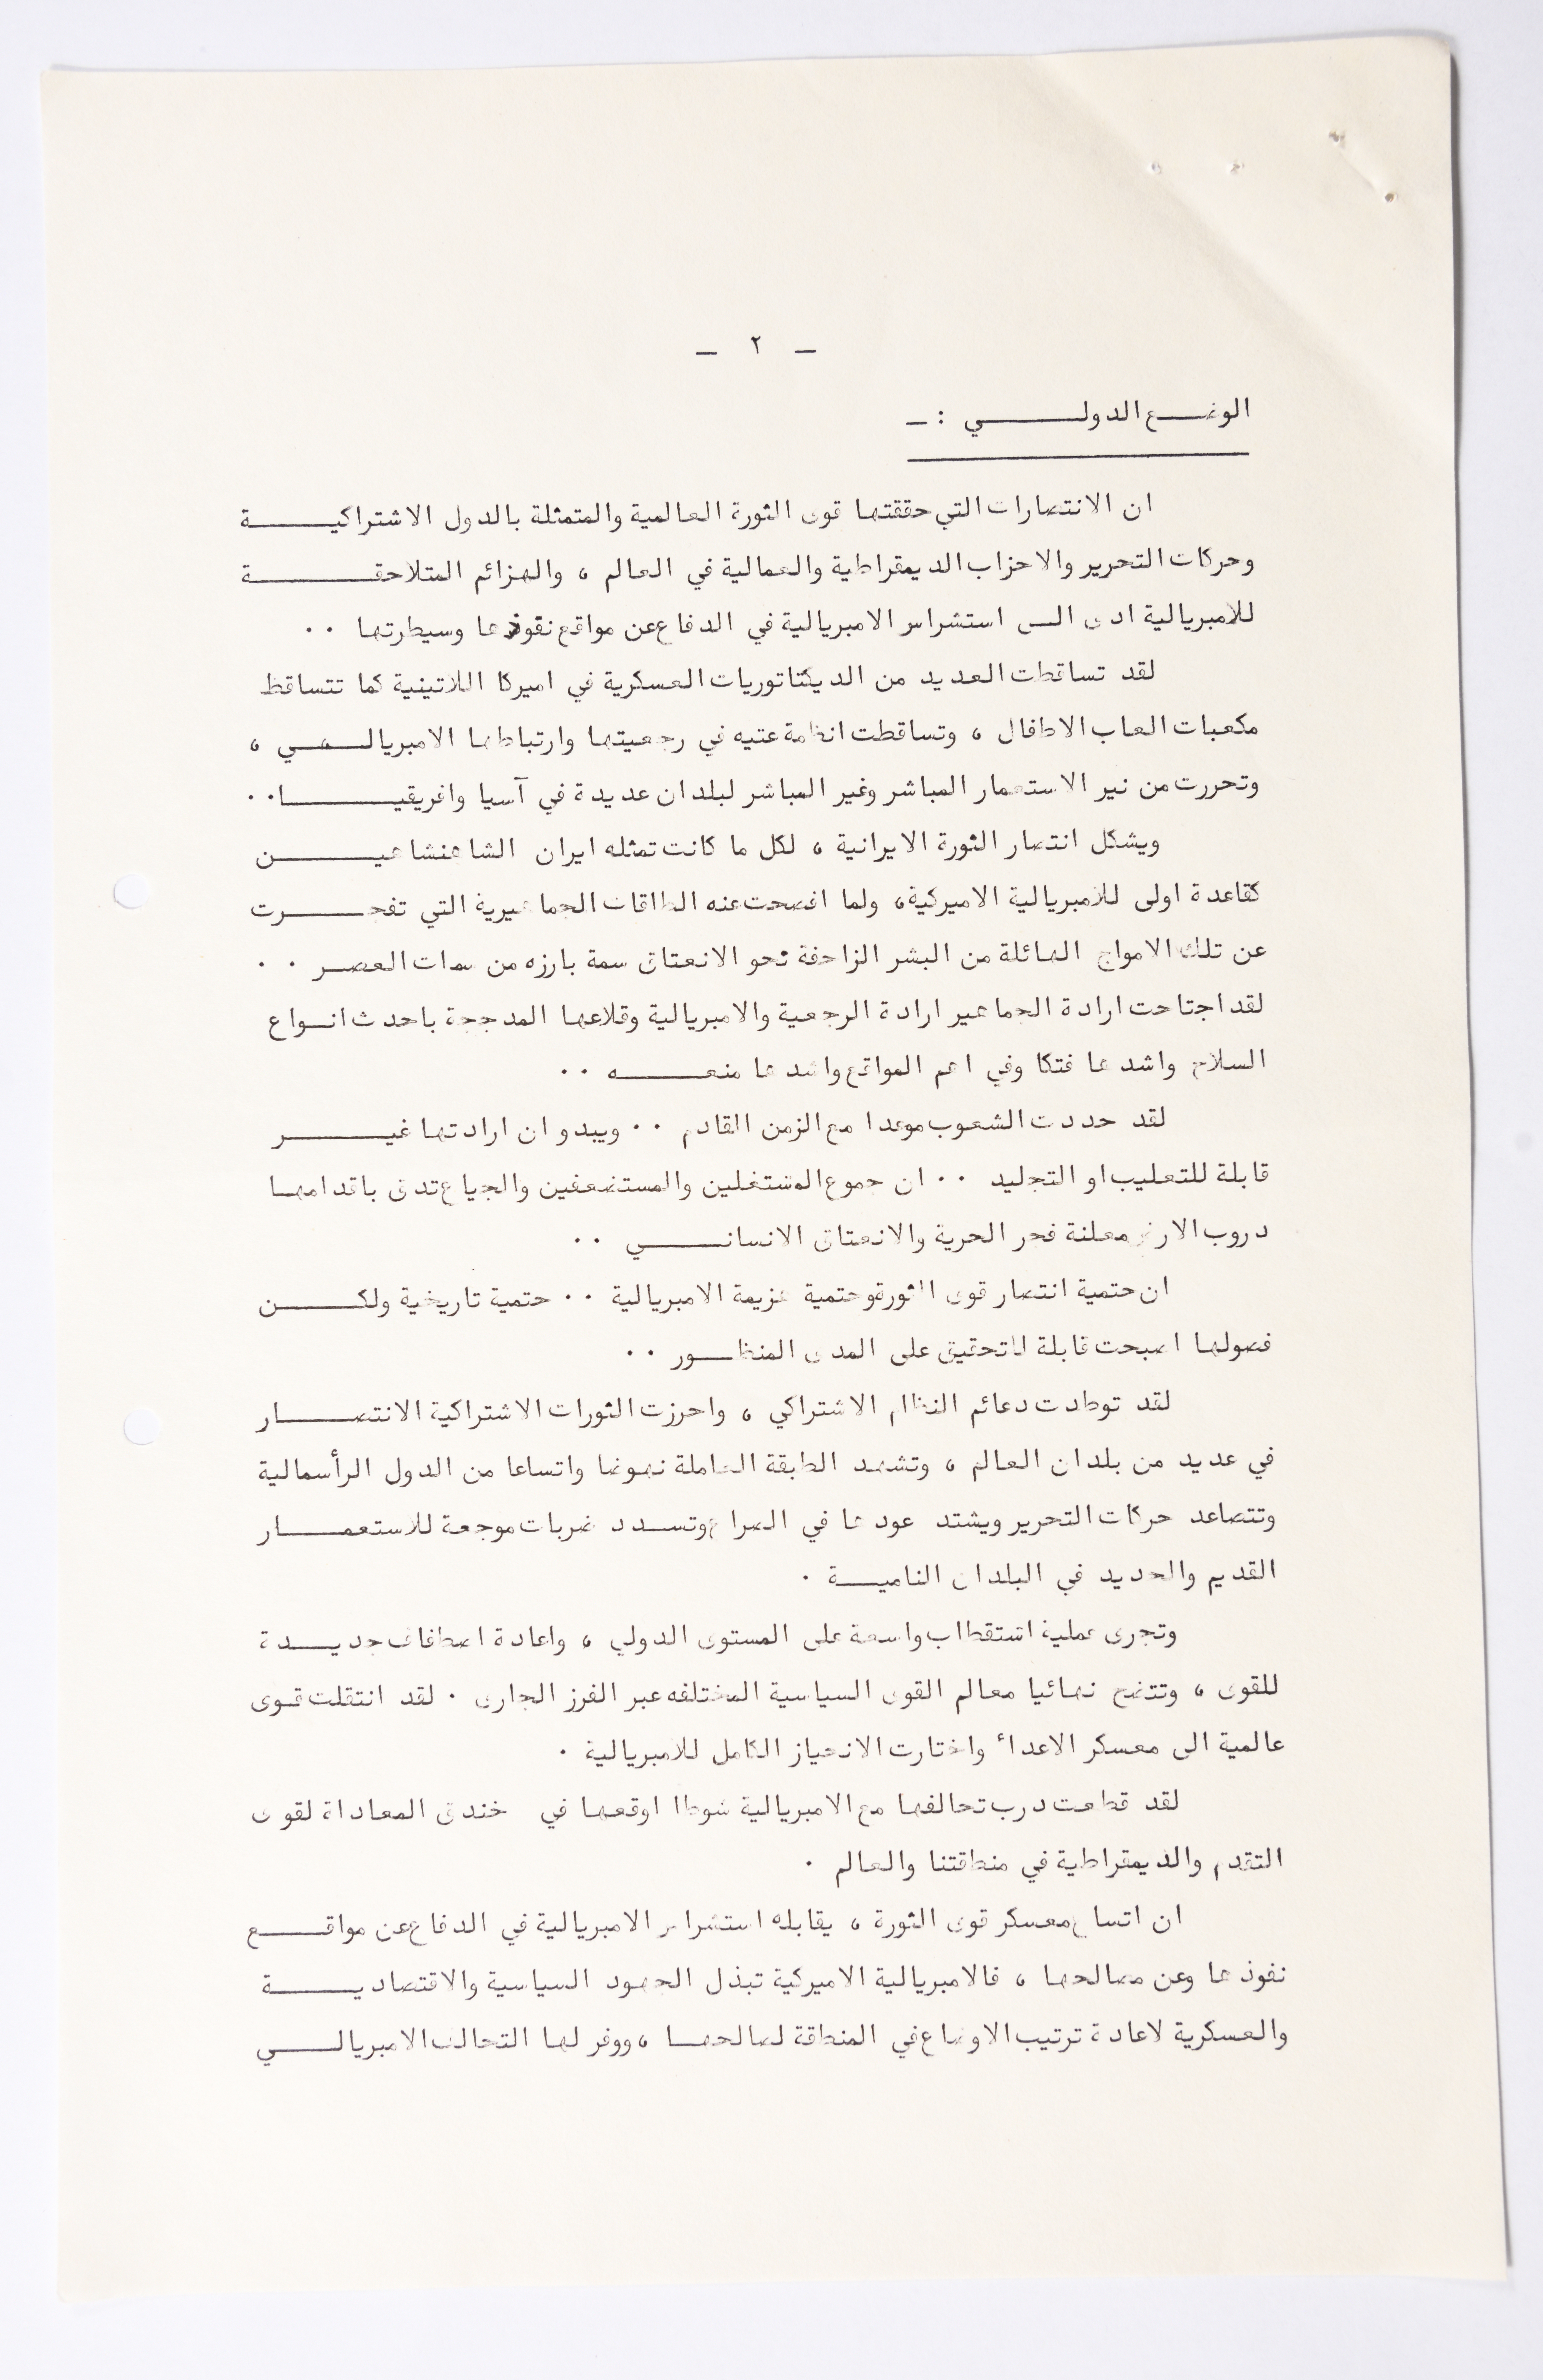 – ٢ –
الوضع الدولي : –
ان الانتصارات التي حققتها قوى الثورة العالمية والمتمثلة بالدول الاشتراكية
وحركات التحرير والاحزاب الديمقراطية والعمالية في العالم ، والهزائم المتلاحقة
للامبريالية ادى الى استشراس الامبريالية في الدفاع عن مواقع نفوذها وسيطرتها ٠٠
لقد تساقطت العديد من الديكتاتوريات العسكرية في اميركا اللاتينية كما تتساقط
مكعبات العاب الاطفال ، وتساقطت انظمة عتيه في رجعيتها وارتباطها الامبريالي ،
وتحررت من نير الاستعمار المباشر وغير المباشر لبلدان عديدة في آسيا وافريقيا ٠٠
ويشكل انتصار الثورة الايرانية ، لكل ما كانت تمثله ايران الشاهنشاهين
كقاعدة اولى للامبريالية الاميركية، ولما افصحت عنه الطاقات الجماهيرية التي تفجرت
عن تلك الامواج الهائلة من البشر الزاحفة نحو الانعتاق سمة بارزه من سمات العصر ٠٠
لقد اجتاحت ارادة الجماهير ارادة الرجعية والامبريالية وقلاعها المدججة باحدث انواع
السلاح واشدها فتكا وفي اهم المواقع واشدها منعه ٠٠
لقد حددت الشعوب موعدا مع الزمن القادم ٠٠ ويبدو ان ارادتها غير
قابلة للتعليب او التجليد ٠٠ ان جموع المشتغلين والمستضعفين والجياع تدق باقدامها
دروب الارض معلنة فجر الحرية والانعتاق الانساني ٠٠
ان حتمية انتصار قوى الثورة وحتمية هزيمة الامبريالية ٠٠ حتمية تاريخية ولكن
فصولها اصبحت قابلة للتحقيق على المدى المنظور ٠٠
لقد توطدت دعائم النظام الاشتراكي ، واحرزت الثورات الاشتراكية الانتصار
في عديد من بلدان العالم ، وتشهد الطبقة العاملة نهوضا واتساعا من الدول الرأسمالية
وتتصاعد حركات التحرير ويشتد عودها في الصراع وتسدد ضربات موجعة للاستعمار
القديم والجديد في البلدان النامية ٠
وتجرى عملية استقطاب واسعة على المستوى الدولي ، واعادة اصطفاف جديدة
للقوى ، وتتضح نهائيا معالم القوى السياسية المختلفه عبر الفرز الجارى ٠ لقد انتقلت قوى
عالمية الى معسكر الاعداء واختارت الانحياز الكامل للامبريالية ٠
لقد قطعت درب تحالفها مع الامبريالية شوطا اوقعها في خندق المعاداة لقوى
التقدم والديمقراطية في منطقتنا والعالم ٠
ان اتساع معسكر قوى الثورة ، يقابله استشراس الامبريالية في الدفاع عن مواقع
نفوذها وعن مصالحها ، فالامبريالية الاميركية تبذل الجهود السياسية والاقتصادية
والعسكرية لاعادة ترتيب الاوضاع في المنطقة لصالحها ، ووفر لها التحالف الامبريالي